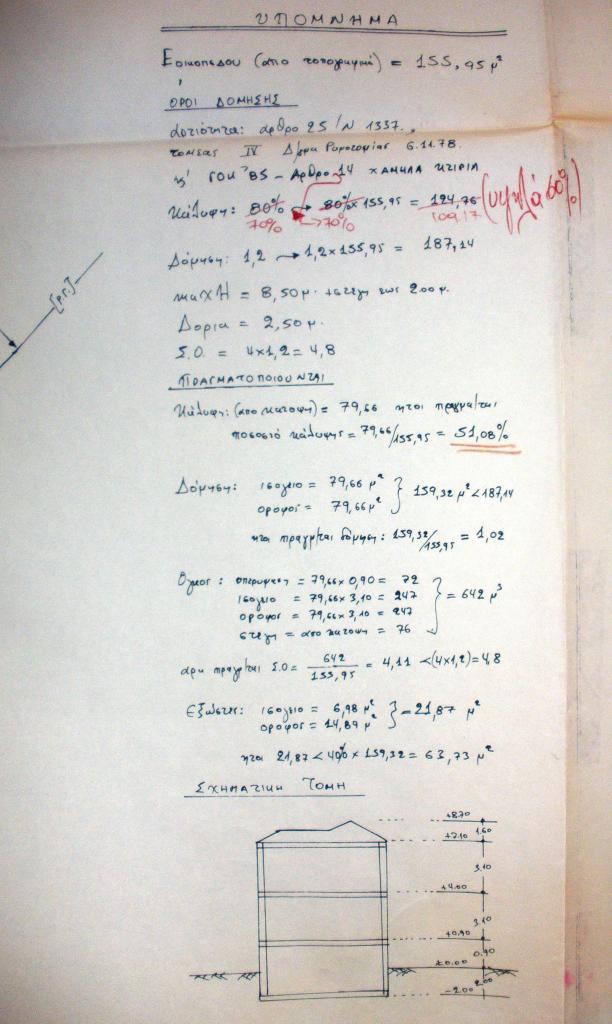 ΥΠΟΜΝΗΜΑ
Εοικοπεδου (απο τοπογραφικό) = 155,95 μ²
ΟΡΟΙ ΔΟΜΗΣΗΣ
Αρτιότητα: αρθρο 25/Ν 1337.,
τομεας IV Δ/γμα Ρυμοτομίας 6.11.78.
κ' ΓΟΚ '85 - Αρθρο 14 ΧΑΜΗΛΑ ΚΤΙΡΙΑ
Κάλυψη: 80% → 80% x 155,95 = 124,76 (υψηλά 60%)
70% → 70% 109,17
Δόμηση: 1,2 → 1,2x155,95 = 187,14
maxH = 8,50 μ. + στέγη εως 2.00 μ.
Δορια = 2,50 μ.
Σ.Ο. = 4x1,2 = 4,8
ΠΡΑΓΜΑΤΟΠΟΙΟΥΝΤΑΙ
Κάλυψη: (απο κατοψη) = 79,66 ητοι πραγμ/ται
ποσοστό κάλυψης = 79,66/155,95 = 51,08%
Δόμηση: ισογειο = 79,66 μ² } 159,32 μ² < 187,14
οροφος = 79,66 μ²
ητοι πραγμ/ται δόμηση: 159,32/155,95 = 1,02
Ογκος: υπερυψωση = 79,66 x 0,90 = 72
ισογειο = 79,66 x 3,10 = 247 } = 642 μ³
οροφος = 79,66 x 3,10 = 247
στέγη = απο κατοψη = 76
αρα πραγμ/ται Σ.Ο = 642/155,95 = 4,11 < (4x1,2) = 4,8
Εξώστες: ισογειο = 6,98 μ² } = 21,87 μ²
οροφος = 14,89 μ²
ητοι 21,87 < 40% x 159,32 = 63,73 μ²
ΣΧΗΜΑΤΙΚΗ ΤΟΜΗ
[Ρ.Γ.]
+8.70
1.60
+7.10
3.10
+4.00
3.10
+0.90
0.90
±0.00
2.00
-2.00